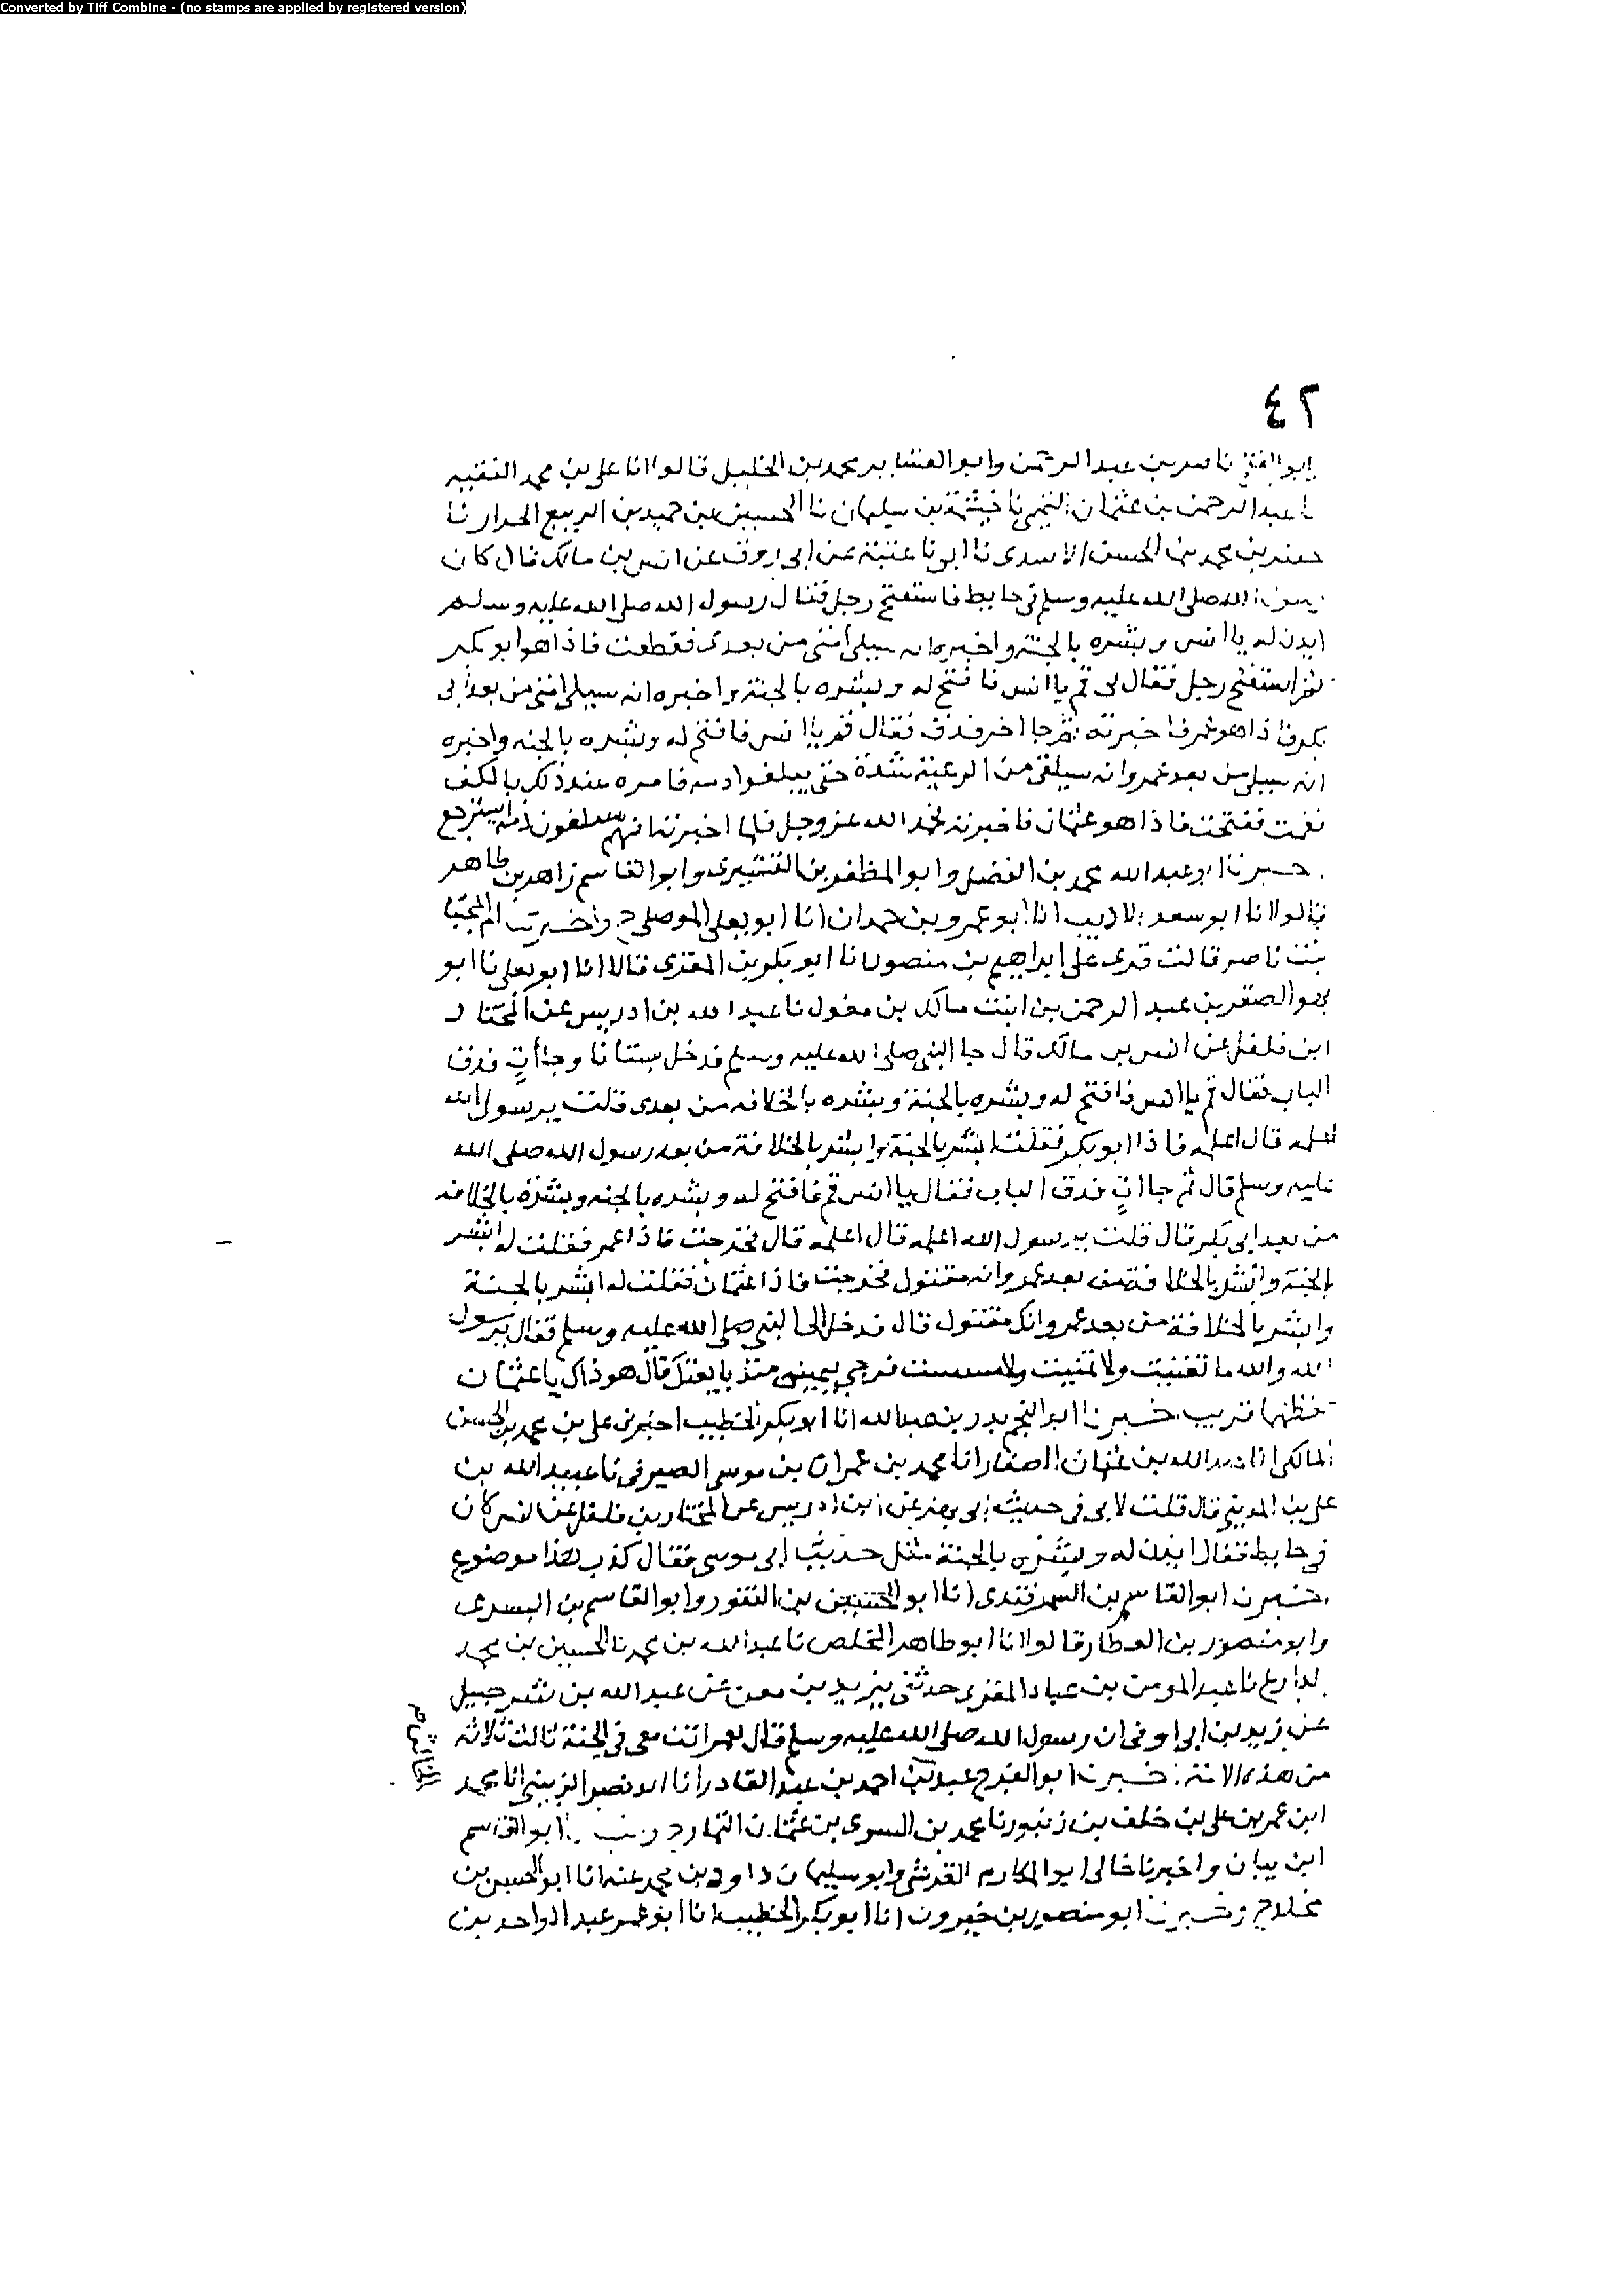 Converted by Tiff Combine - (no stamps are applied by registered version)
٤٢
ابو الفتح ناصر بن عبد الرحمن وابو العشاير محمد بن الخليل قالوا انا على بن محمد الفقيه
عبد الرحمن بن عثمان التميمي نا خيثمة بن سليمان نا الحسين بن حميد بن الربيع الحرار نا
جعفر بن محمد بن الحسن الاسدى نا ابو نا عتبة عن ابى روق عن انس بن مالك قال كان
رسول الله صلى الله عليه وسلم في حايط فاستفتح رجل فقال رسول الله صلى الله عليه وسلم
ايدن له يا انس وبشره بالجنة واخبره انه سيلى امتى من بعدى فقطعت فاذا هو ابو بكر
ثم استفتح رجل فقال لى قم يا انس فافتح له وبشره بالجنة واخبره انه سيلى امتى من بعد ابى
بكر فاذا هو عمر فاخبرته ثم جا اخر فدق فقال قم يا انس فافتح له وبشره بالجنه واخبره
انه سيلى من بعد عمر وانه سيلقى من الرعية شدة حتى يبلغوا دمه فامره عند ذلك بالكف
نقمت ففتحت فاذا هو عثمان فاخبرته فحمد الله عز وجل فلما اخبرته انهم سيبلغون دمه استرجع
خبرنا ابو عبد الله محمد بن الفضل وابو المظفر بن القشيرى وابو القاسم زاهر بن طاهر
قالوا انا ابو سعد الاديب انا ابو عمرو بن حمدان انا ابو يعلى الموصلي ح واخبرتنا ام المجتبا
بنت ناصر قالت قرى على ابراهيم بن منصور انا ابو بكر بن المقرى قالا انا ابو يعلى نا ابو
بهز الصقر بن عبد الرحمن بن ابنت مالك بن مغول نا عبد الله بن ادريس عن المختار
ابن فلفل عن انس بن مالك قال جا النبى صلى الله عليه وسلم فدخل بستانا وجا آت فدق
الباب فقال قم يا انس فافتح له وبشره بالجنة وبشره بالخلافه من بعدى قلت يرسول الله
اعلمه قال اعلمه فاذا ابو بكر فقلت ابشر بالجنة وابشر بالخلافة من بعد رسول الله صلى الله
عليه وسلم قال ثم جا اتٍ فدق الباب فقال يا انس قم فافتح له وبشره بالجنه وبشره بالخلافه
من بعد ابى بكر قال قلت يرسول الله اعلمه قال اعلمه قال فخرجت فاذا عمر فقلت له ابشر
بالجنة وابشر بالخلافة من بعد عمر وانه مقتول فخرجت فاذا عثمان فقلت له ابشر بالجنة
وابشر بالخلافة من بعد عمر وانك مقتول قال فدخل الى النبى صلى الله عليه وسلم فقال يرسول
الله والله ما تغنيت ولا تمنيت ولا مسست فرجى بيمينى منذ بايعتك قال هو ذاك يا عثمان
قريب خبرنا ابو النجم بدر بن عبد الله انا ابو بكر الخطيب اخبرنى على بن محمد بن الحسن
المالكى انا عبد الله بن عثمان الصفار انا محمد بن عمران بن موسى الصيرفى نا عبد الله بن
على بن المدينى قال قلت لابى فى حديث ابى بهز عن ابن ادريس عن المختار بن فلفل عن انس كان
فى حايط فقال ايذن له وبشره بالجنة مثل حديث ابى موسى فقال كذب هذا موضوع
خبرنا ابو القاسم بن السمرقندى انا ابو الحسين بن النقور وابو القاسم بن البسرى
وابو منصور بن العطار قالوا انا ابو طاهر المخلص نا عبد الله بن محمد نا الحسين بن محمد
الذارع نا عبد المومن بن عباد المقرى حدثنى يزيد بن معن عن عبد الله بن شرحبيل
عن زيد بن ابى اوفى ان رسول الله صلى الله عليه وسلم قال لعمر انت معى فى الجنة ثالث ثلاثه
من هذه الامة خبرنا ابو الفرج عبد بن احمد بن عبد القادر انا ابو نصر الزينبى انا محمد
ابن عمر بن على بن خلف بن زنبور نا محمد بن السرى بن عثمان التمار ح ابو القاسم
ابن بيان واخبرنا خالى ابو المكارم القرشى وابو سليمان داود بن محمد عنه انا ابو الحسن بن
مخلد ح خبرنا ابو منصور بن خيرون انا ابو بكر الخطيب انا ابو عمر عبد الواحد بن